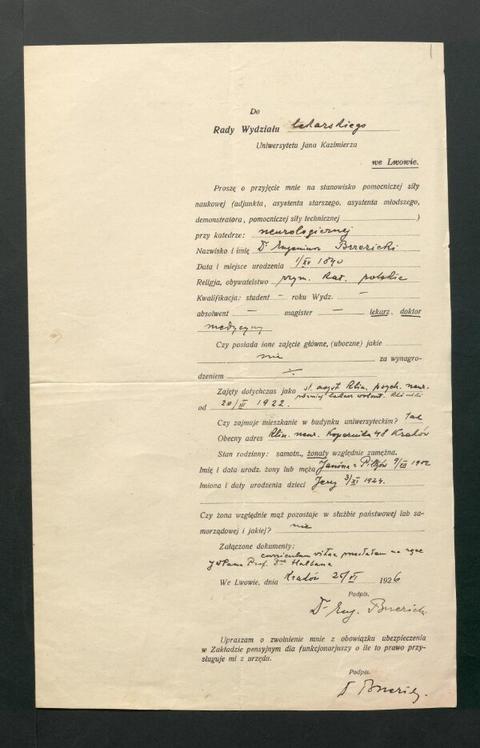 Do
Rady Wydziału lekarskiego
Uniwersytetu Jana Kazimierza
we Lwowie.
Proszę o przyjęcie mnie na stanowisko pomocniczej siły
naukowej (adjunkta, asystenta starszego, asystenta młodszego,
demonstratora, pomocniczej siły technicznej )
przy katedrze: neurologicznej
Nazwisko i imię Dr Eugeniusz Brzezicki
Data i miejsce urodzenia 1/XI 1890
Religja, obywatelstwo rzym. kat. polskie
Kwalifikacja: student – roku Wydz. –
absolwent – magister – lekarz, doktor
medycyny
Czy posiada inne zajęcie główne, (uboczne) jakie
nie za wynagro-
dzeniem
Zajęty dotychczas jako st. asyst. klin. psych. neur.
od 20/III 1922.
Czy zajmuje mieszkanie w budynku uniwersyteckim? tak
Obecny adres: Klin. neur. Kopernika 48 Kraków
Stan rodziny: samotn., żonaty względnie zamężna.
Imię i data urodz. żony lub męża Janina z 1902
Imiona i daty urodzenia dzieci Jerzy 3/XI 1924.
Czy żona względnie mąż pozostaje w służbie państwowej lub sa-
morządowej i jakiej? nie
Załączone dokumenty:
curriculum vitae przesłałem na ręce
JWPana Prof. Dra Halbana
We Lwowie, dnia Kraków 25/VI 1926
Podpis.
Dr Eug. Brzezicki
Upraszam o zwolnienie mnie z obowiązku ubezpieczenia
w Zakładzie pensyjnym dla funkcjonarjuszy o ile to prawo przy-
sługuje mi z urzędu.
Podpis.
Dr Brzezicki